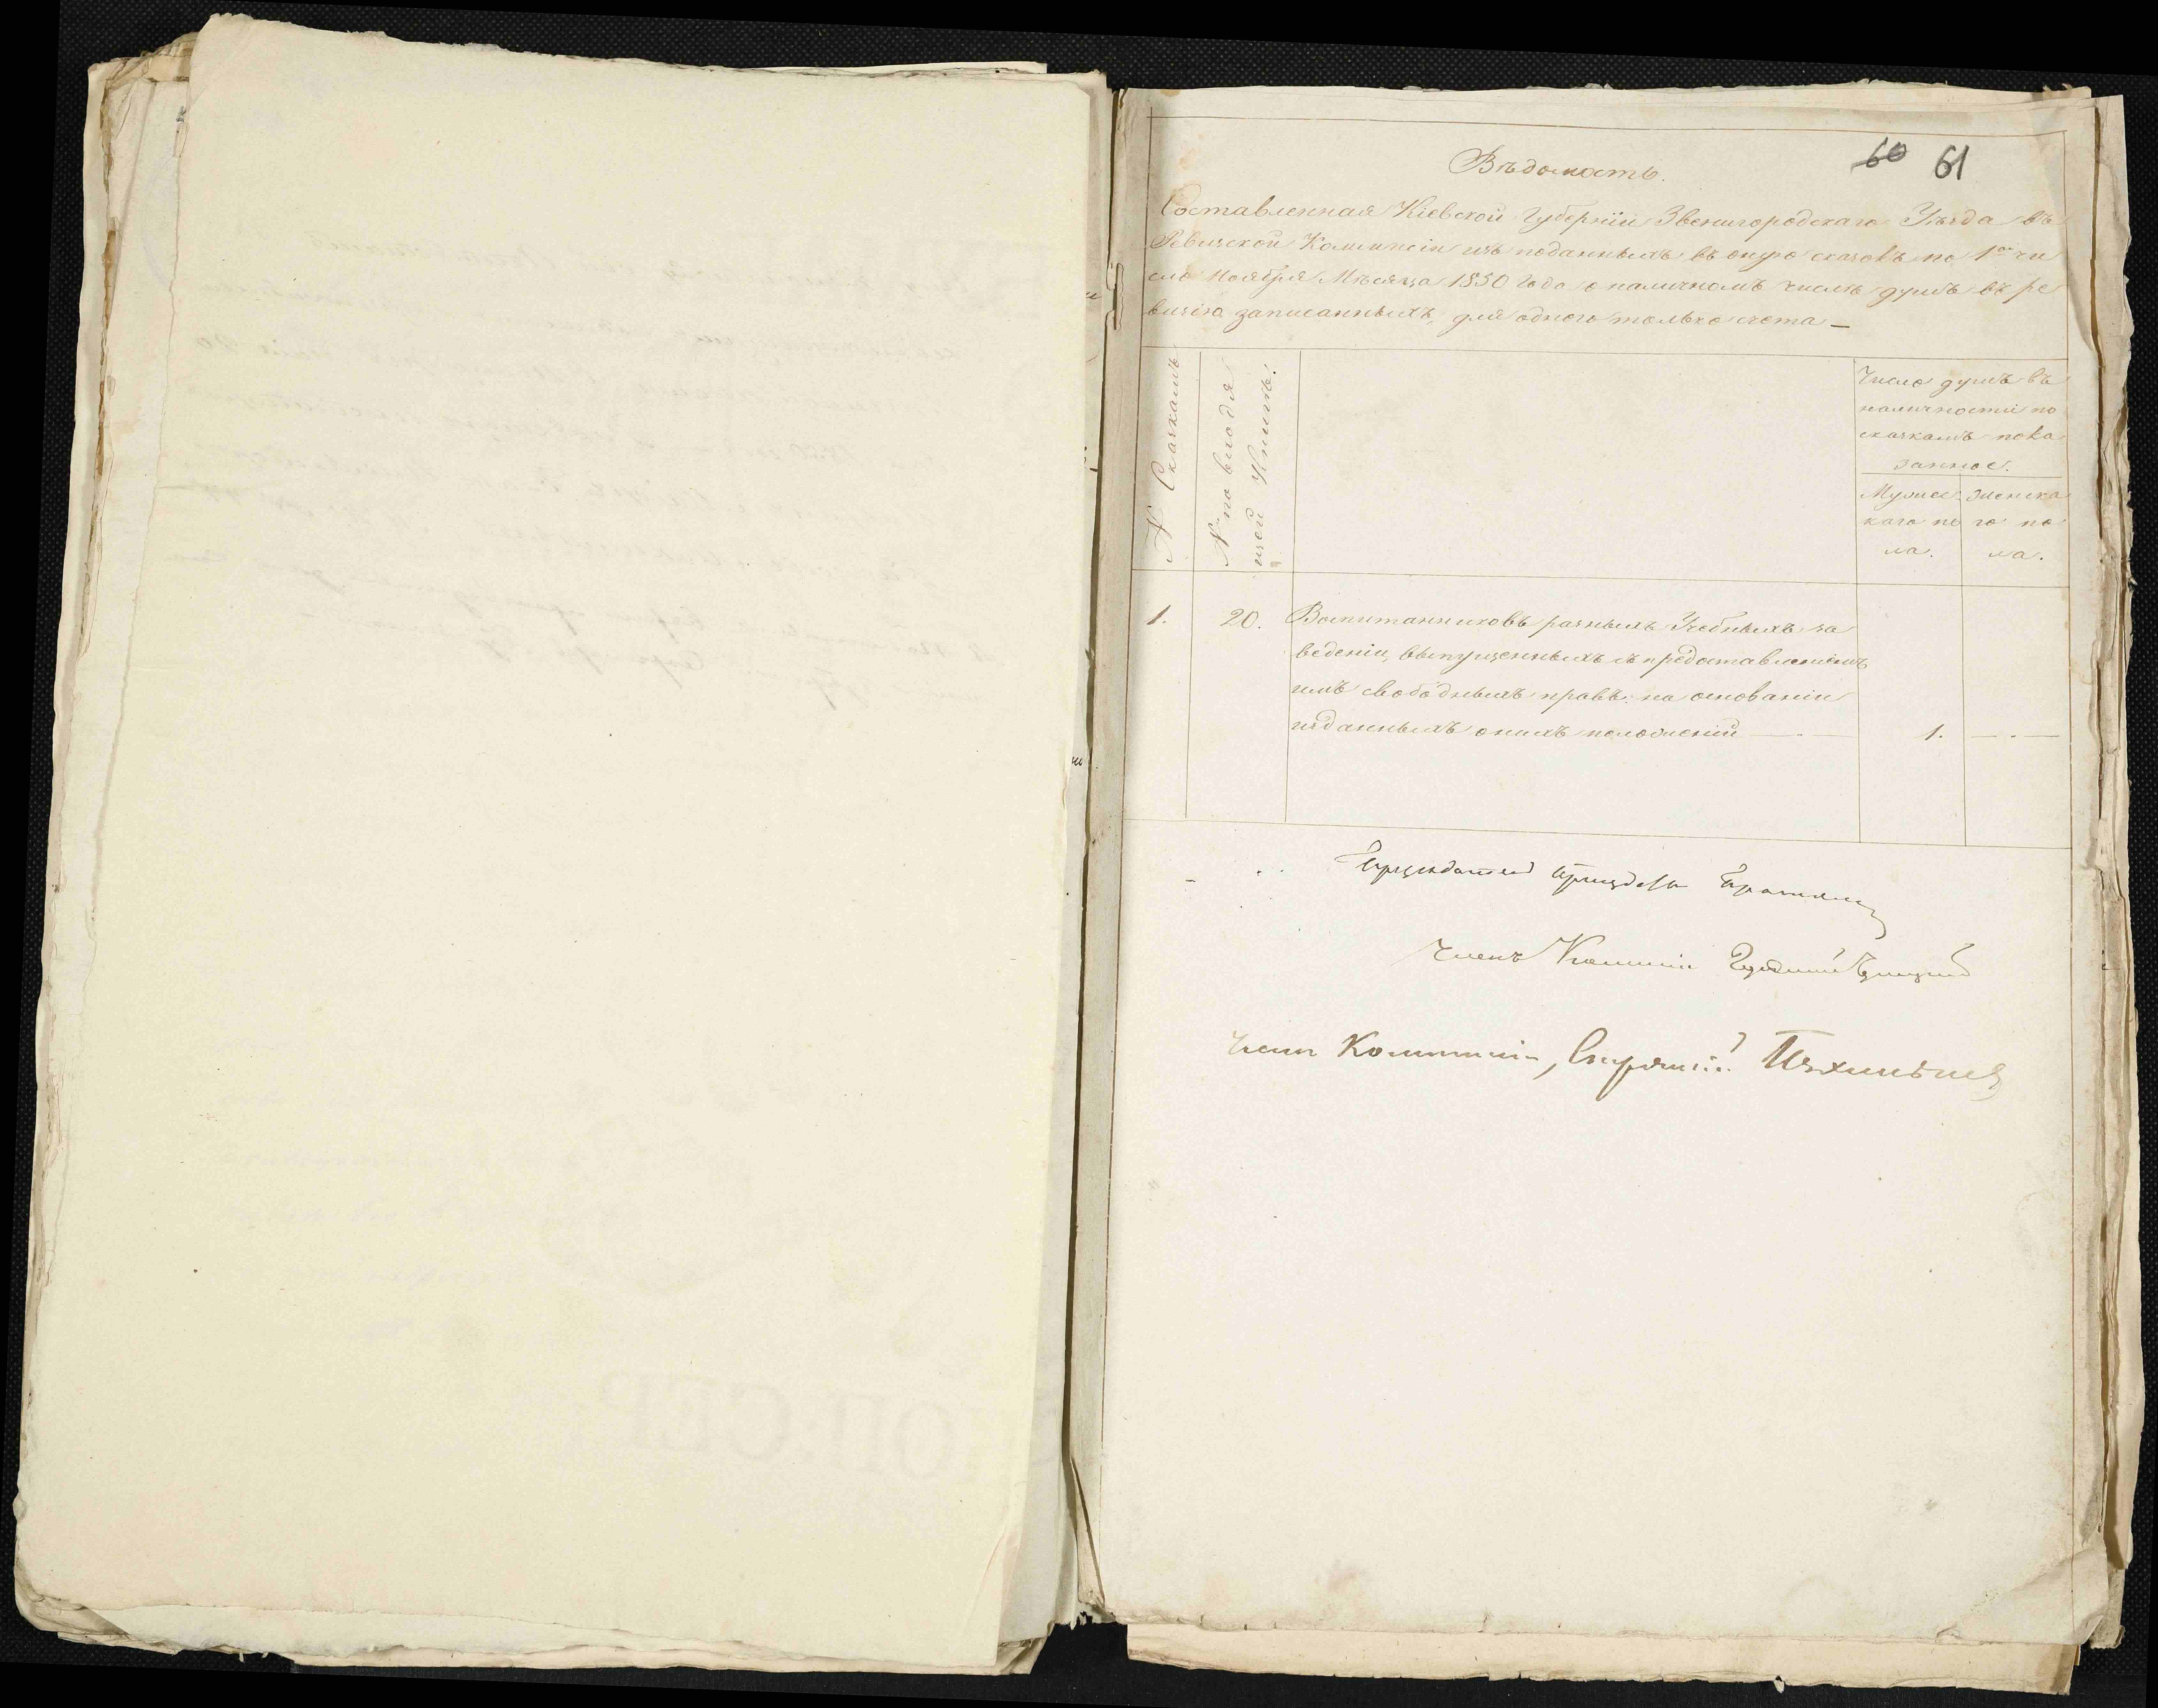 60 61
Вѣдомость.
Составленная Кіевской Губерніи Звенигородскаго Уѣзда въ
Ревизской Коммисіи изъ поданныхъ въ оную сказокъ по 1ое чи
сло Ноября Мѣсяца 1850 года о наличномъ числѣ душъ въ ре
визію записанныхъ, для одного только счета —
№ Сказкамъ
№ по входя
щей Книгѣ.
Число душъ въ
наличности по
сказкамъ пока
занное.
Мужес
каго по
ла.
женска
го по
ла.
1. 20. Воспитанниковъ разныхъ Учебныхъ за
веденіи, выпущенныхъ съ предоставленіемъ
имъ свободныхъ правъ: на основаніи
изданныхъ о нихъ положеній — . — 1. — . —
Членъ Коммисіи
Членъ Коммисіи,